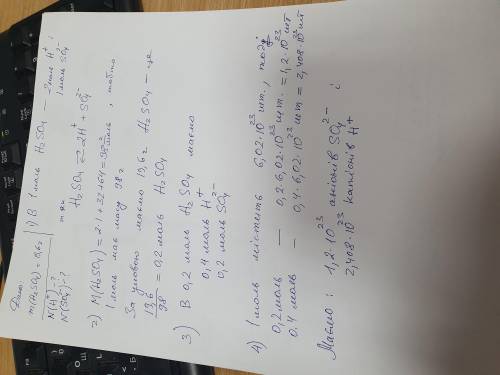 Дано:
m(H₂SO₄) = 19,6 г
N(H⁺) - ?
N(SO₄²⁻) - ?
1) В 1 моль H₂SO₄ — 2 моль H⁺ і
1 моль SO₄²⁻
H₂SO₄ ⇄ 2H⁺ + SO₄²⁻
2) M(H₂SO₄) = 2·1 + 32 + 64 = 98 г/моль, тобто
1 моль має масу 98 г
За умовою маємо 19,6 г H₂SO₄ — це
19,6/98 = 0,2 моль H₂SO₄
3) В 0,2 моль H₂SO₄ маємо
0,4 моль H⁺
0,2 моль SO₄²⁻
4) 1 моль містить 6,02·10²³ шт., тоді
0,2 моль — 0,2·6,02·10²³ шт. = 1,2·10²³ шт
0,4 моль — 0,4·6,02·10²³ шт = 2,408·10²³ шт
Маємо: 1,2·10²³ аніонів SO₄²⁻ і
2,408·10²³ катіонів H⁺